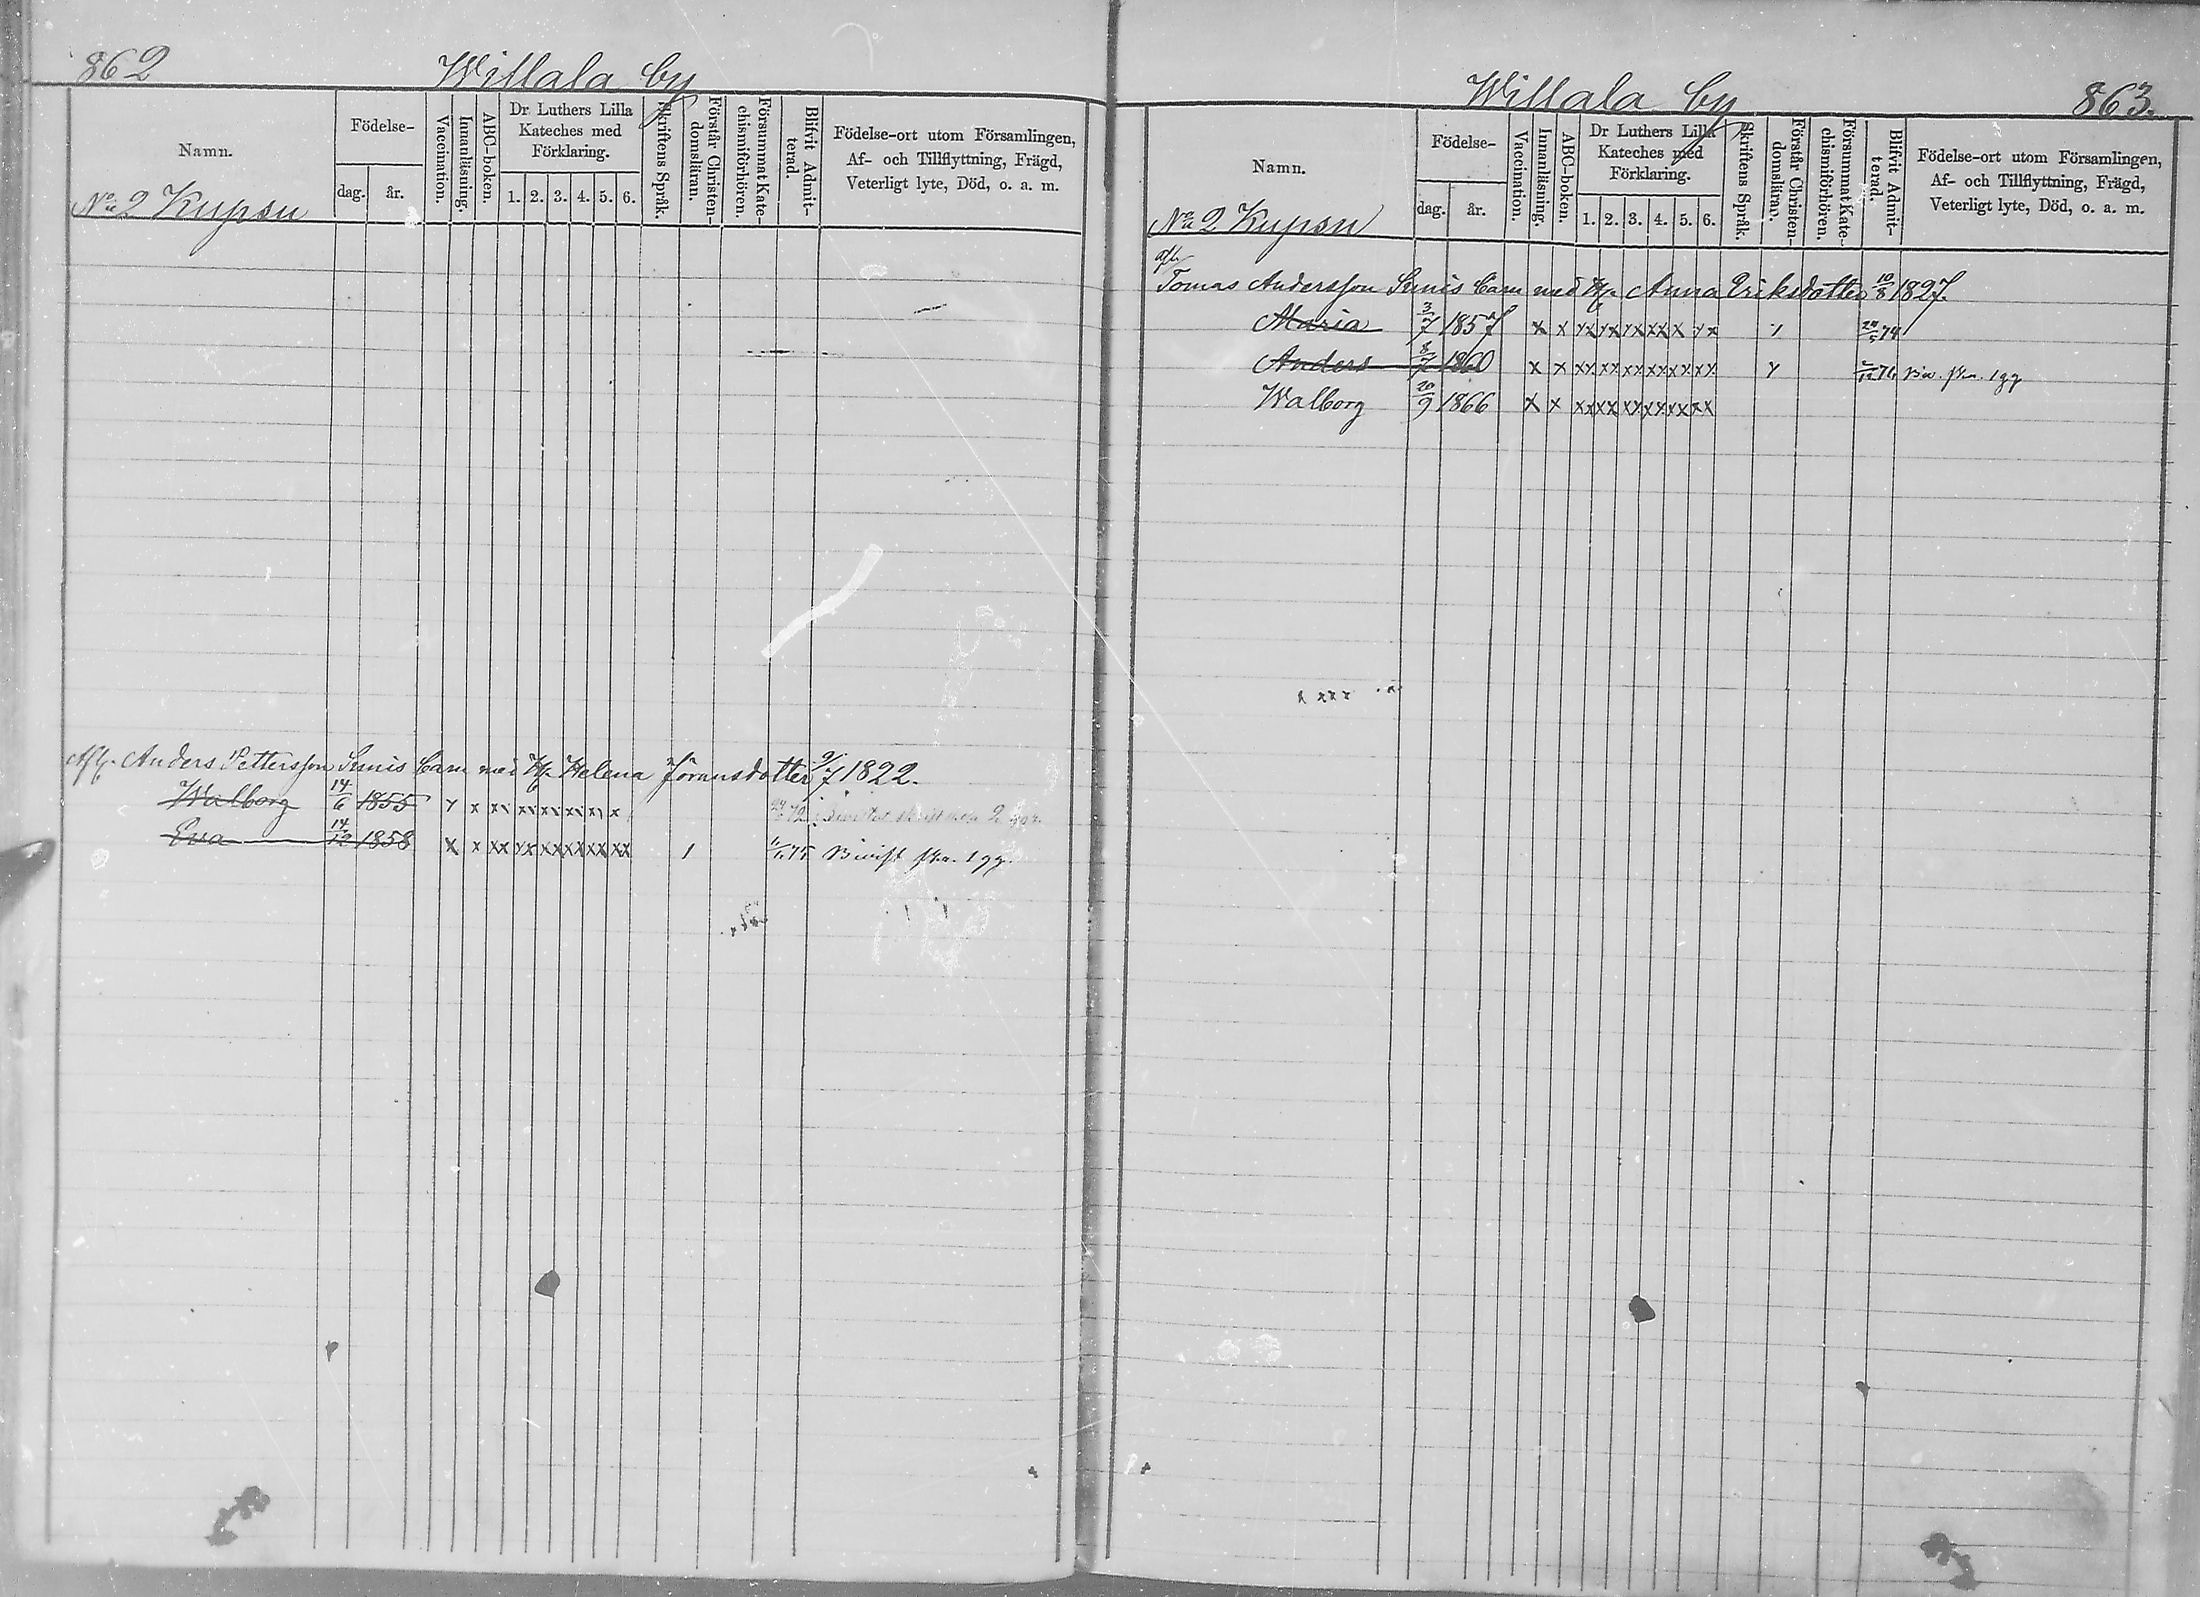 862
Willala by
Namn.
Födelse-
dag. år.
Vaccination.
Innanläsning.
ABC-boken.
Dr Luthers Lilla
Kateches med
Förklaring.
1. 2. 3. 4. 5. 6.
Skriftens Språk.
Förstår Christen-
domsläran.
Försummat Kate-
chismiförhören.
Blifvit Admit-
terad.
Födelse-ort utom Församlingen,
Af- och Tillflyttning, Frägd,
Veterligt lyte, Död, o. a. m.
No 2 Kupsu
Afl. Anders Pettersson Sunis barn med H. Helena Jöransdotter 9/7 1822.
Walborg 14/6 1855 x x xx xx xx xx xx x
Eva 14/12 1858 x x xx xx xx xx xx xx 1 75 Bivist skr. 1 gg.
Willala by
863.
Namn.
Födelse-
dag. år.
Vaccination.
Innanläsning.
ABC-boken.
Dr Luthers Lilla
Kateches med
Förklaring.
1. 2. 3. 4. 5. 6.
Skriftens Språk.
Förstår Christen-
domsläran.
Försummat Kate-
chismiförhören.
Blifvit Admit-
terad.
Födelse-ort utom Församlingen,
Af- och Tillflyttning, Frägd,
Veterligt lyte, Död, o. a. m.
No 2 Kupsu
afl.
Tomas Andersson Sunis barn med H. Anna Eriksdotter 10/8 1827.
Maria 3/7 1857 x x xx xx xx xx x xx 24/5 74
Anders 8/7 1860 x x xx xx xx xx xx xx 76 Biv. skr. 1 gg
Walborg 20/9 1866 x x xx xx xx xx xx xx